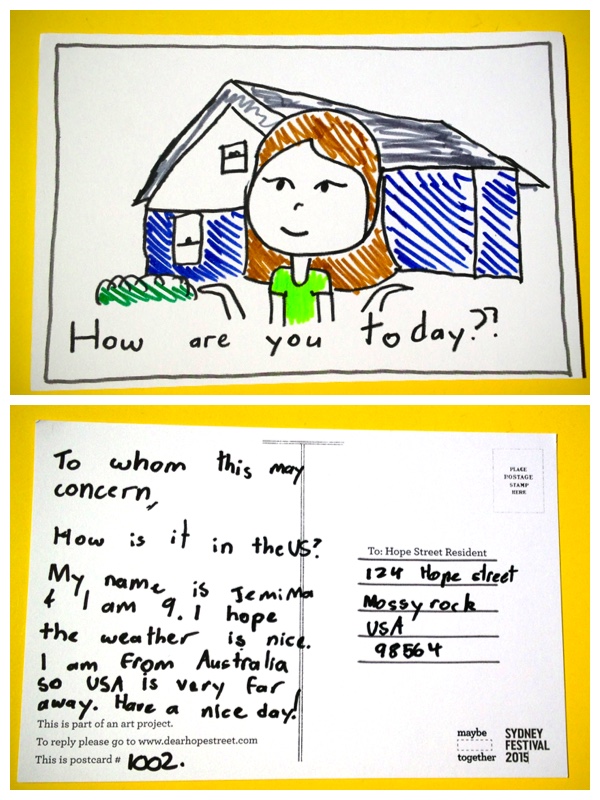 How are you today??
To whom this may
concern,
How is it in the US?
My name is Jemima
& I am 9. I hope
the weather is nice.
I am from Australia
so USA is very far
away. Have a nice day!
This is part of an art project.
To reply please go to www.dearhopestreet.com
This is postcard # 1002.
PLACE
POSTAGE
STAMP
HERE
To: Hope Street Resident
124 Hope street
Mossyrock
USA
98564
maybe
together
SYDNEY
FESTIVAL
2015